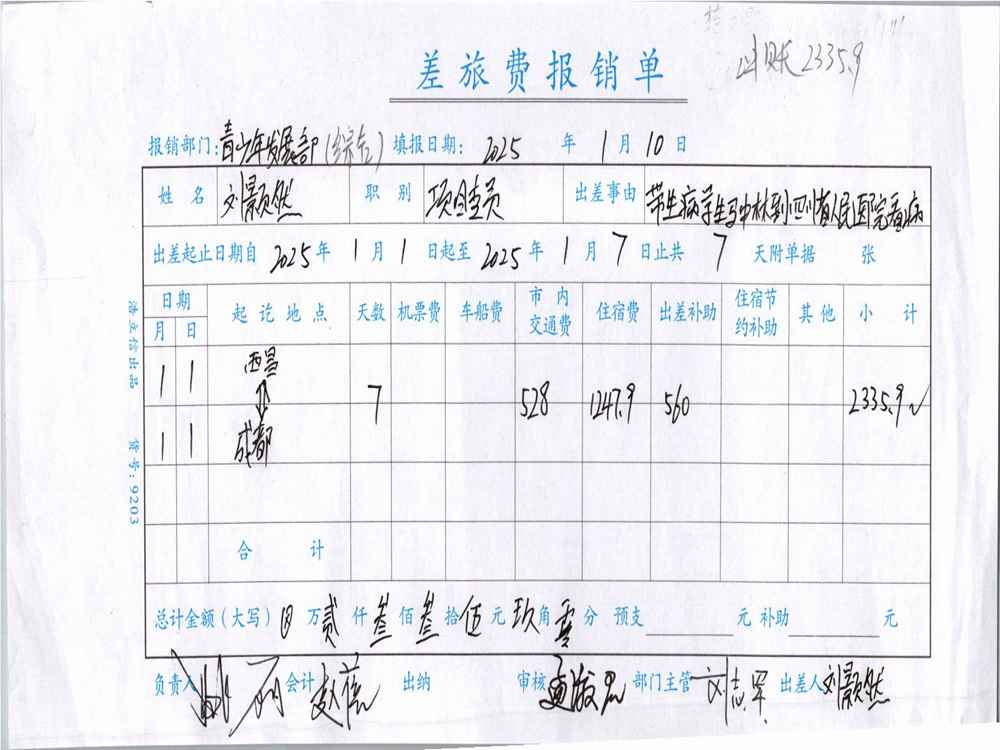 差旅费报销单
出账 2335.9
报销部门: 青少年发展部(综合) 填报日期: 2025 年 1 月 10 日
姓名 刘颢然 职别 项目专员 出差事由 带生病学生马中林到四川省人民医院看病
出差起止日期自 2025 年 1 月 1 日起至 2025 年 1 月 7 日止共 7 天附单据 张
日期 起讫地点 天数 机票费 车船费 市内交通费 住宿费 出差补助 住宿节约补助 其他 小计
月 日
1 1 西昌
7 528 1247.9 560 2335.9
1 1 成都
合计
总计金额(大写) 万 贰 仟 叁 佰 叁 拾 伍 元 玖 角 零 分 预支 元 补助 元
负责人 会计 出纳 审核 部门主管 刘志军 出差人 刘颢然
货号: 9203